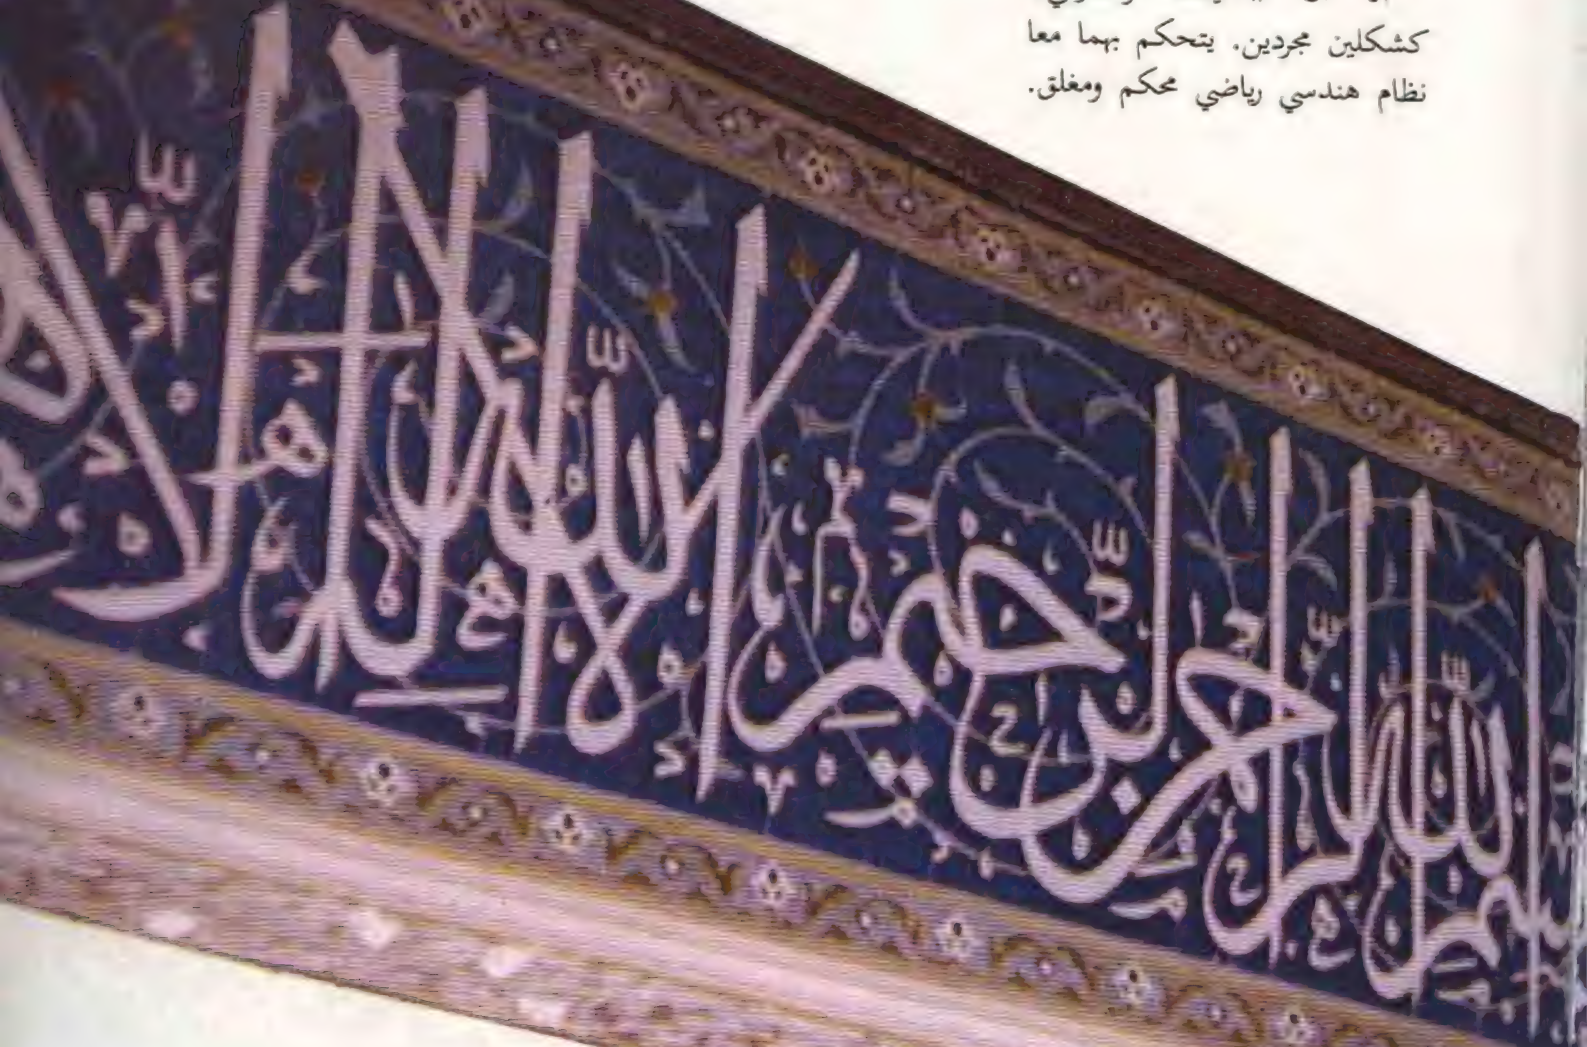 كشكلين مجردين. يتحكم بهما معا
نظام هندسي رياضي محكم ومغلق.
بسم الله الرحمن الرحيم الله لا اله الا هو